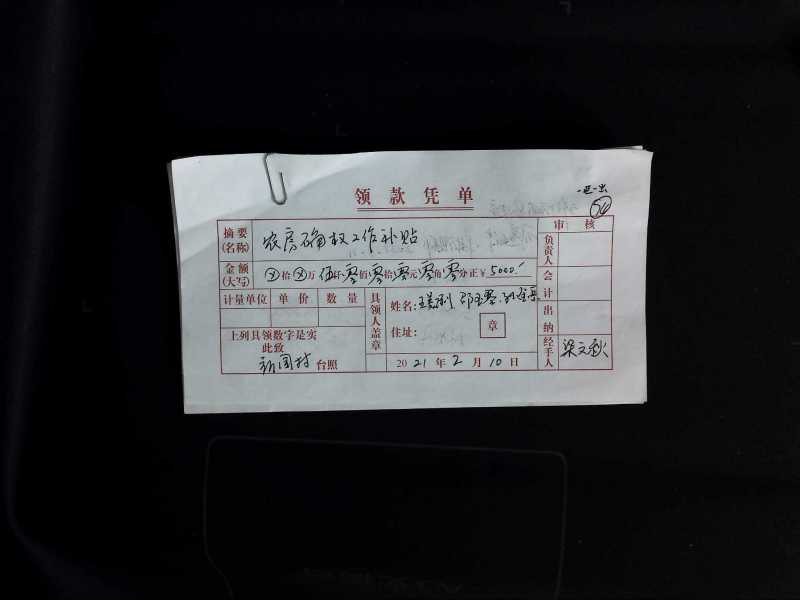 领款凭单
一进一出
54
摘要(名称) 农房确权工作补贴 审核
金额(大写) ⊗拾⊗万伍仟零佰零拾零元零角零分正¥5000.-
负责人
会计
计量单位 单价 数量 具领人盖章 姓名:
住址: 章
出纳
上列具领数字是实
此致
新国村 台照 2021年2月10日
经手人 梁文秋